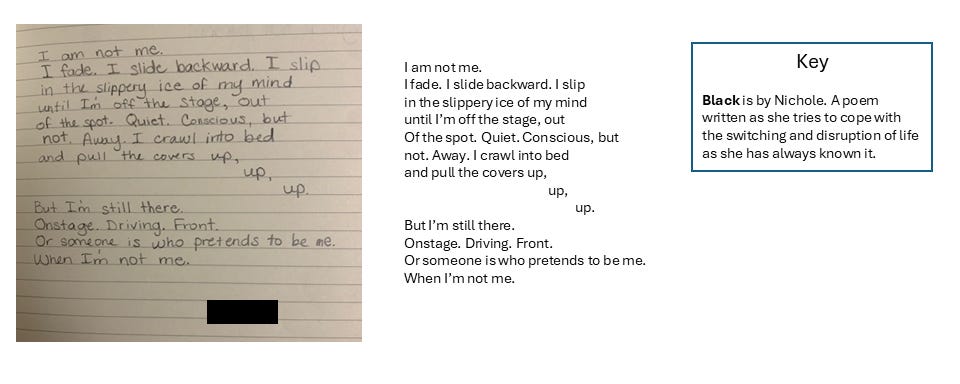 I am not me.
I fade. I slide backward. I slip
in the slippery ice of my mind
until I'm off the stage, out
of the spot. Quiet. Conscious, but
not. Away. I crawl into bed
and pull the covers up,
up,
up.
But I'm still there.
Onstage. Driving. Front.
Or someone is who pretends to be me.
When I'm not me.
I am not me.
I fade. I slide backward. I slip
in the slippery ice of my mind
until I'm off the stage, out
Of the spot. Quiet. Conscious, but
not. Away. I crawl into bed
and pull the covers up,
up,
up.
But I'm still there.
Onstage. Driving. Front.
Or someone is who pretends to be me.
When I'm not me.
Key
Black is by Nichole. A poem
written as she tries to cope with
the switching and disruption of life
as she has always known it.